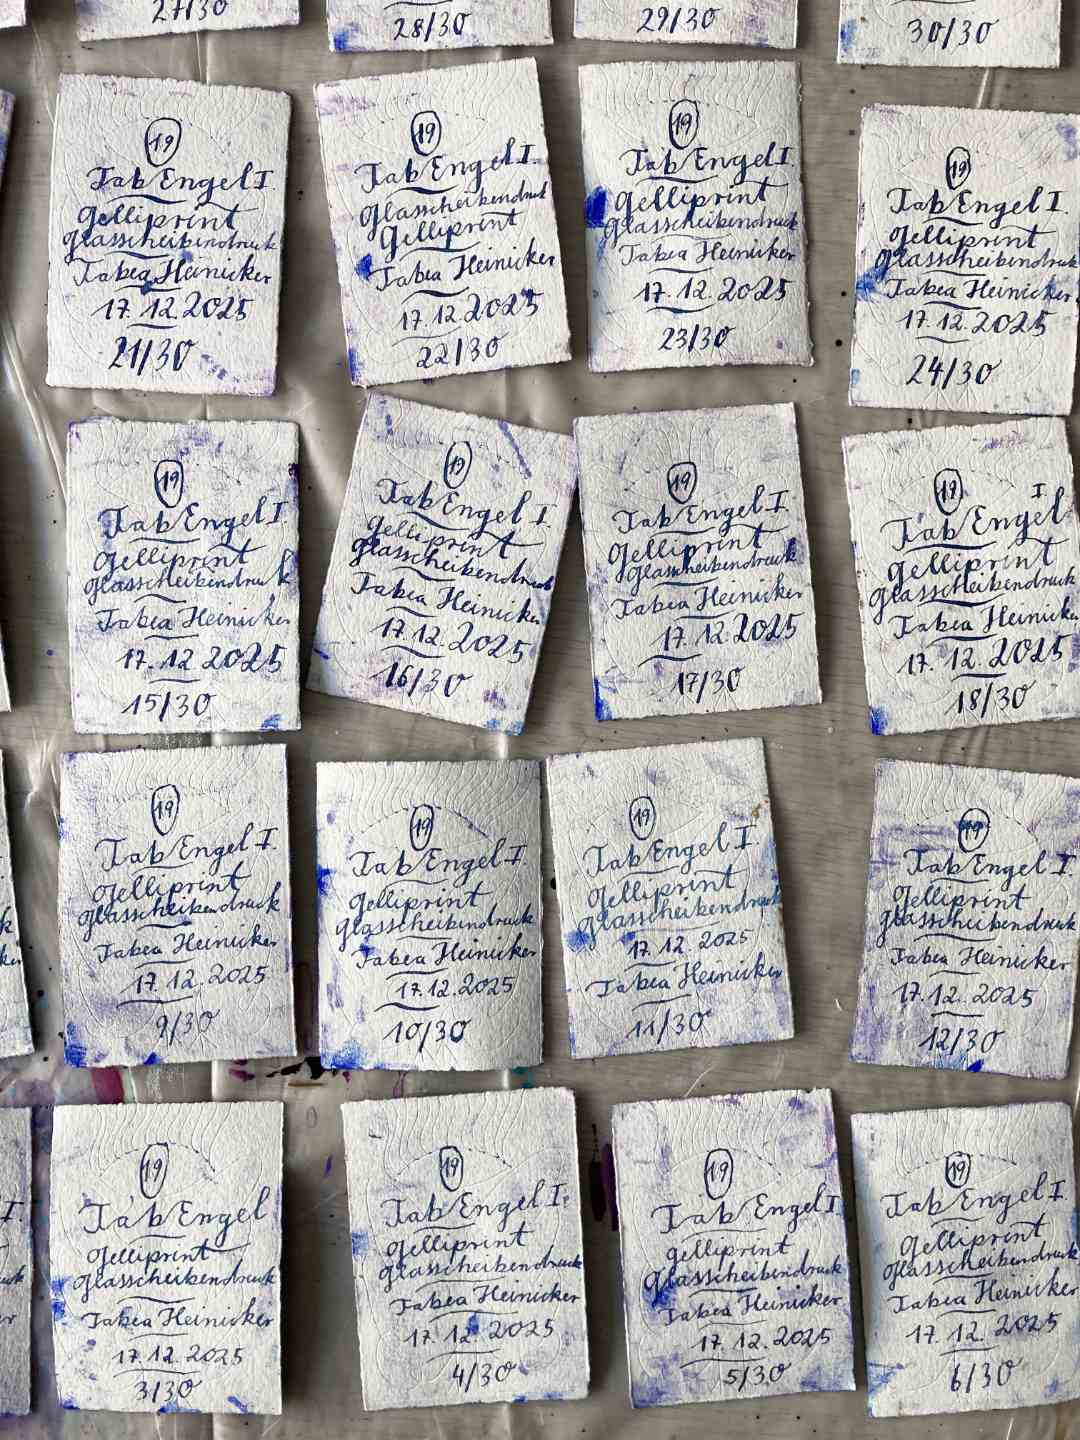 27/30
28/30
29/30
30/30
19
Tab Engel I.
Gelliprint
Glasscheibendruck
Tabea Heinicker
17.12.2025
21/30
19
Tab Engel I.
Glasscheibendruck
Gelliprint
Tabea Heinicker
17.12.2025
22/30
19
Tab Engel I.
Gelliprint
Glasscheibendruck
Tabea Heinicker
17.12.2025
23/30
19
Tab Engel I.
Gelliprint
Glasscheibendruck
Tabea Heinicker
17.12.2025
24/30
19
Tab Engel I.
Gelliprint
Glasscheibendruck
Tabea Heinicker
17.12.2025
15/30
19
Tab Engel I.
Gelliprint
Glasscheibendruck
Tabea Heinicker
17.12.2025
16/30
19
Tab Engel I.
Gelliprint
Glasscheibendruck
Tabea Heinicker
17.12.2025
17/30
19
Tab Engel I.
Gelliprint
Glasscheibendruck
Tabea Heinicker
17.12.2025
18/30
19
Tab Engel I.
Gelliprint
Glasscheibendruck
Tabea Heinicker
17.12.2025
9/30
19
Tab Engel I.
Gelliprint
Glasscheibendruck
Tabea Heinicker
17.12.2025
10/30
19
Tab Engel I.
Gelliprint
Glasscheibendruck
17.12.2025
Tabea Heinicker
11/30
19
Tab Engel I.
Gelliprint
Glasscheibendruck
Tabea Heinicker
17.12.2025
12/30
19
Tab Engel
Gelliprint
Glasscheibendruck
Tabea Heinicker
17.12.2025
3/30
19
Tab Engel I.
Gelliprint
Glasscheibendruck
Tabea Heinicker
17.12.2025
4/30
19
Tab Engel I.
Gelliprint
Glasscheibendruck
Tabea Heinicker
17.12.2025
5/30
19
Tab Engel I.
Gelliprint
Glasscheibendruck
Tabea Heinicker
17.12.2025
6/30